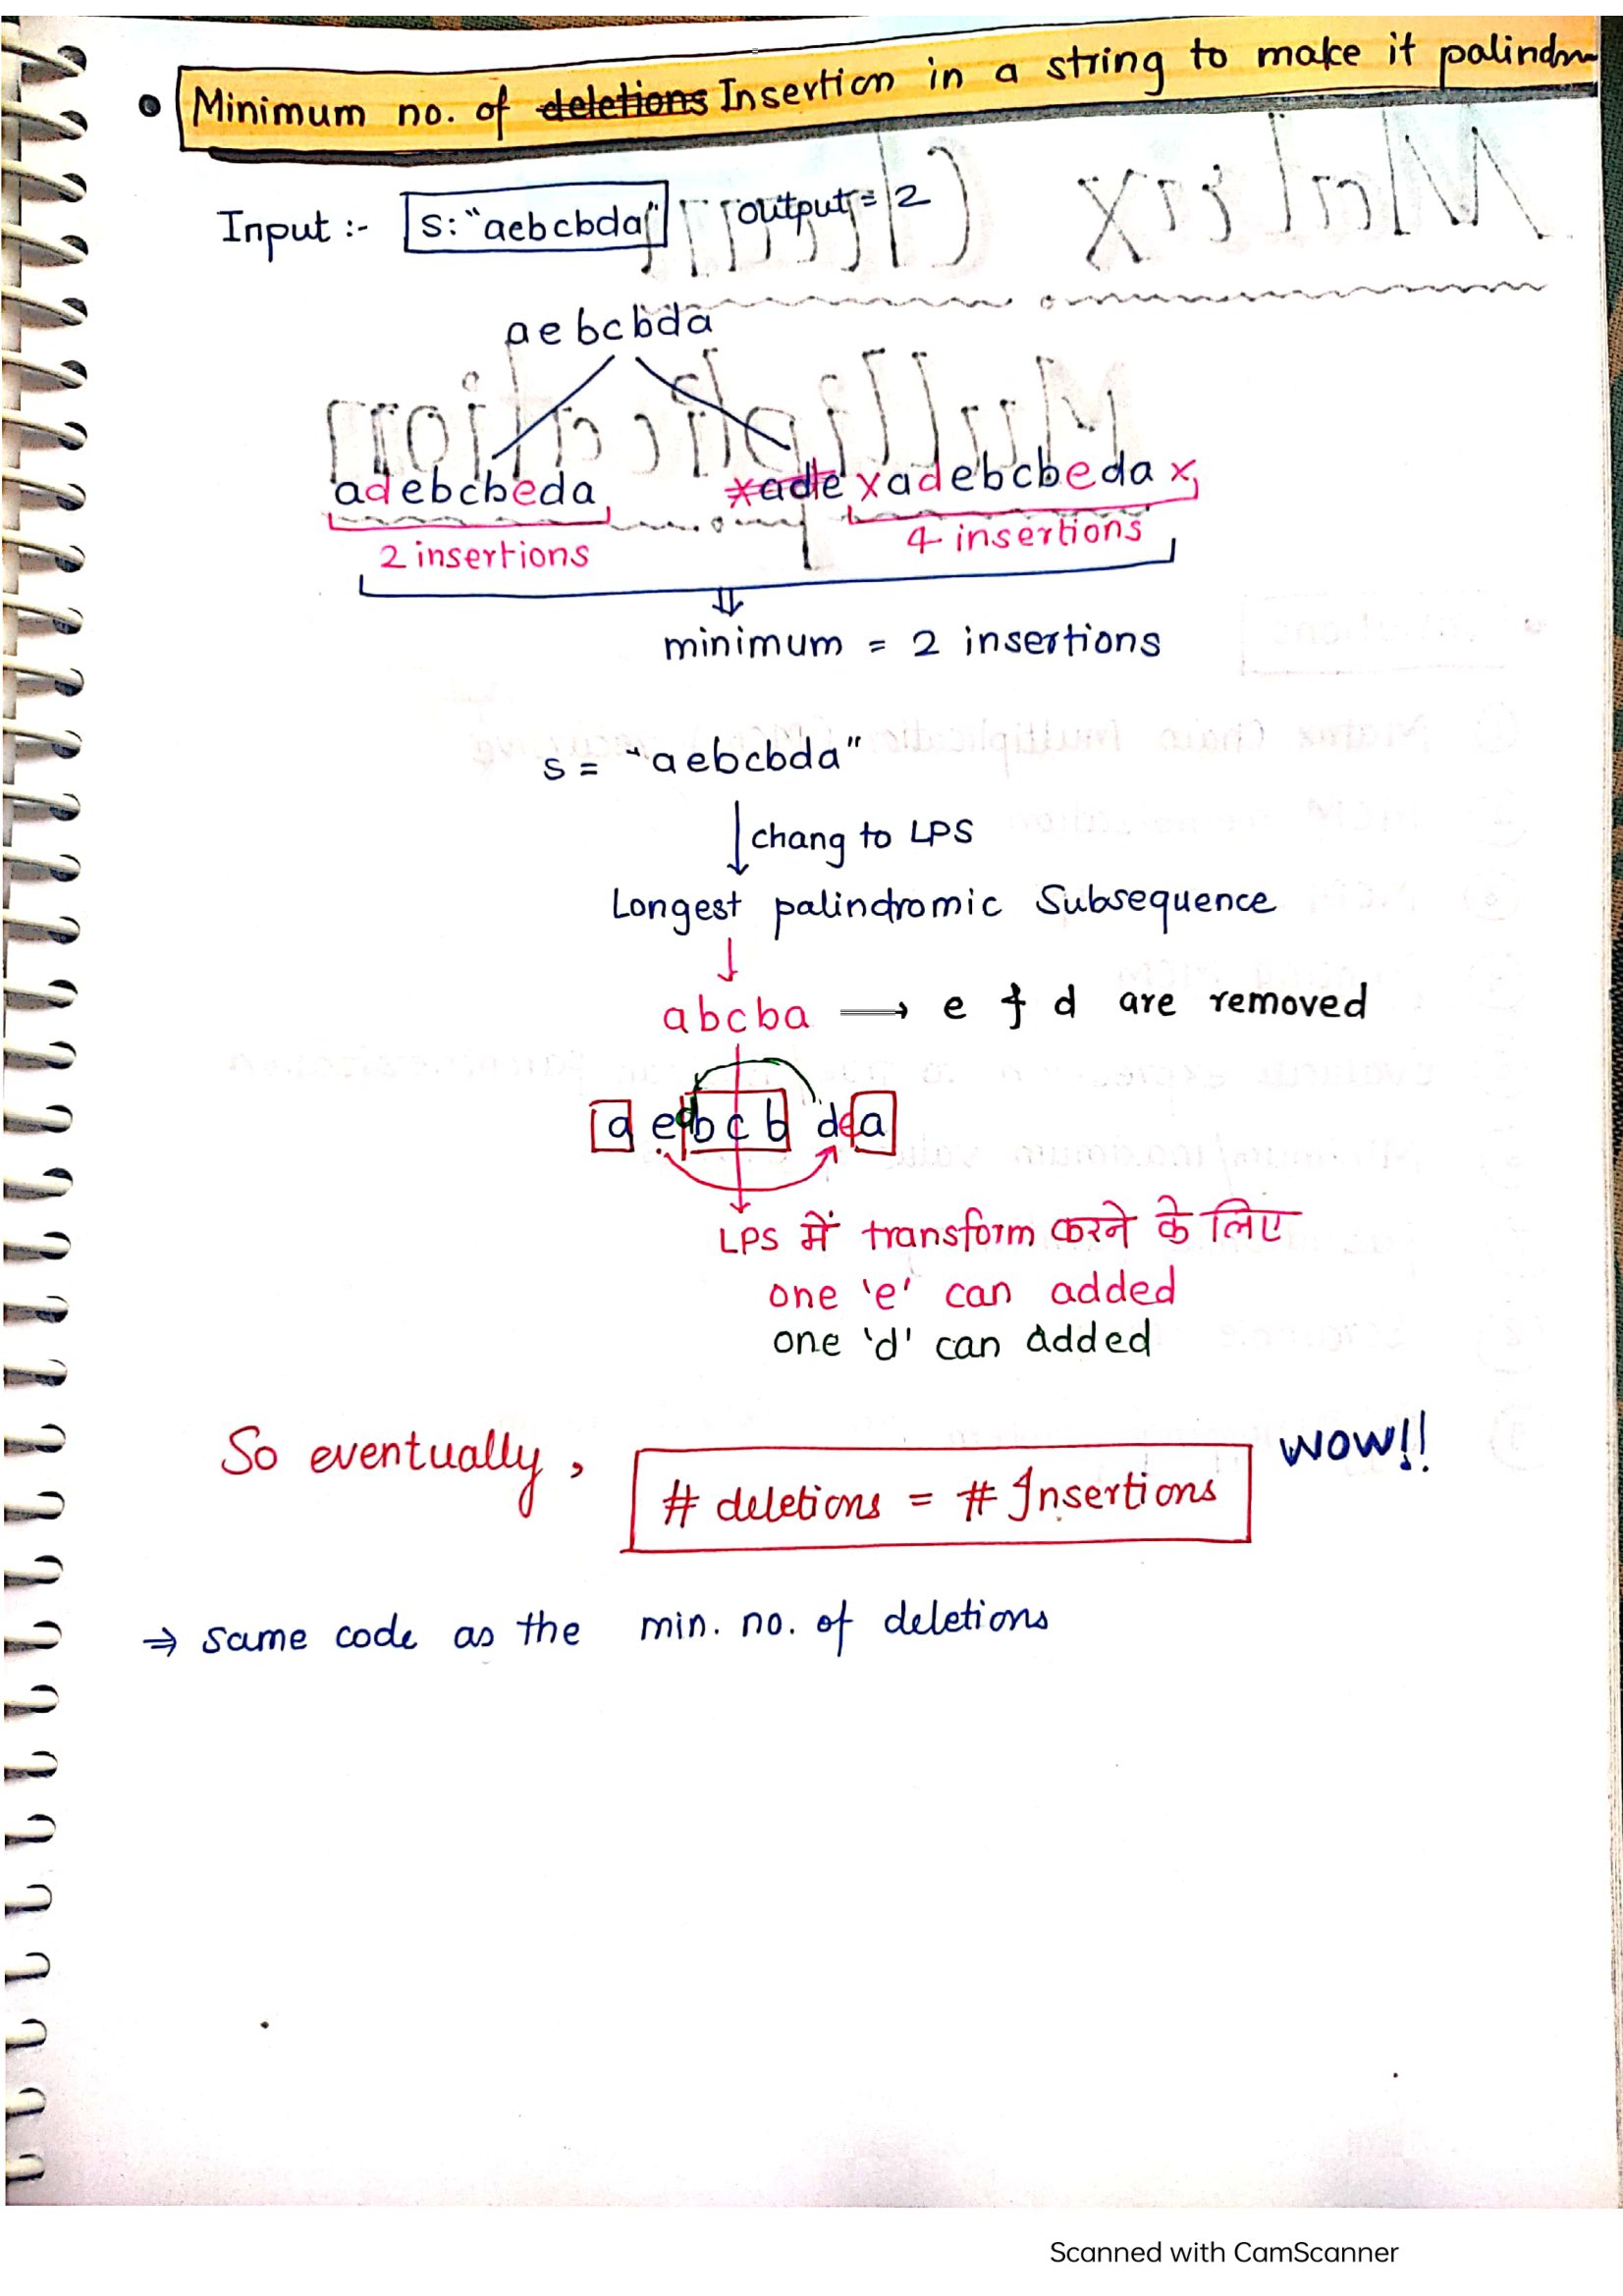 • Minimum no. of deletions Insertion in a string to make it palindrm
Input :- s: "aebcbda" output = 2
aebcbda
adebcbeda xade xadebcbeda x
2 insertions 4 insertions
minimum = 2 insertions
s = "aebcbda"
chang to LPS
Longest palindromic Subsequence
abcba → e & d are removed
a e d b c b d e a
LPS में transform करने के लिए
one 'e' can added
one 'd' can added
So eventually, # deletions = # Insertions WOW!!
⇒ same code as the min. no. of deletions
Scanned with CamScanner